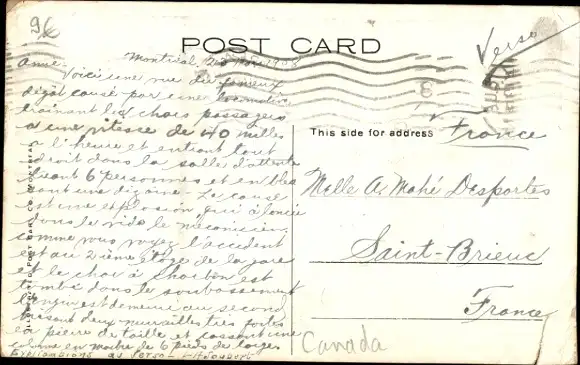 96
POST CARD
Verso
Montréal, 23 Nov 1908
Voici une vue du fameux
dégât causé par une locomotive
trainant les chars passagers
a une vitesse de 40 milles
a l'heure et entrant tout
droit dans la salle d'attente
tuant 6 personnes et en bles
sant une dizaine - La cause
est une explosion qui a lancé
dans le vide le mécanicien
comme vous voyez l'accident
est au 2ième étage de la gare
et le char à charbon est
tombé dans le soubassement
l'engin est demeuré au second
brisant deux murailles très fortes
en pierre de taille et cassant une
en marbre de 6 pieds de
This side for address
France
Melle A. Mahé Desportes
Saint-Brieuc
France
Canada